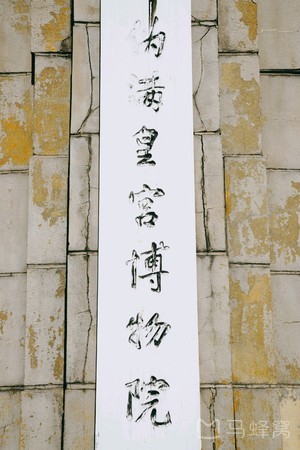 伪满皇宫博物院
马蜂窝